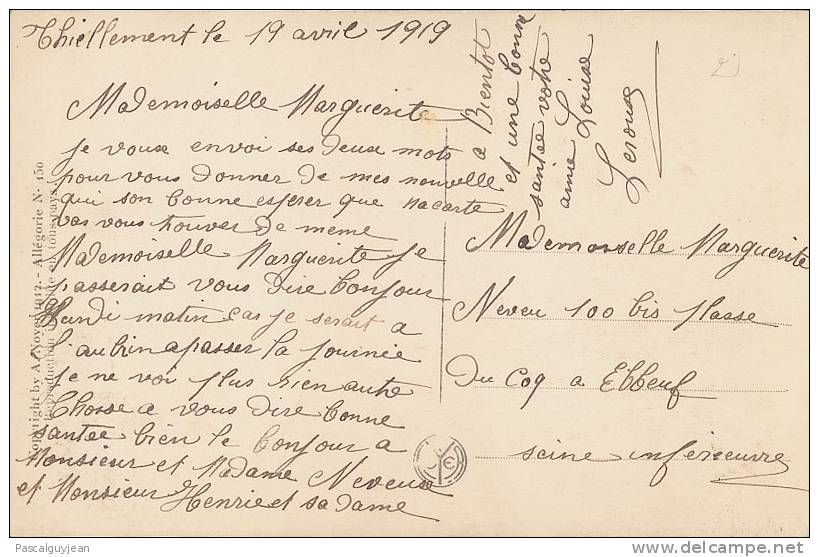 Thiellement le 19 avril 1919
Mademoiselle Marguerite
Je vouse envoi ses deuse mots
pour vous donner de mes nouvelle
qui son bonne esperer que macarte
vas vous trouver de meme
Mademoiselle Marguerite Je
passerait vous dire bonjour
Mardi matin car je serait a
l'aubin apasser la journée
Je ne voi plus rien autre
Chosse a vous dire bonne
santée bien le bonjour a
Monsieur et Madame Neveuse
et Monsieur Henrie et sa dame
a Bientot
et une bonne
santée votre
amie Louise
Lerouse
Mademoiselle Marguerite
Neveu 100 bis plasse
Du Coq a Elbeuf
seine inferieuvre
Copyright by A. Noyer 1917. - Allégorie N° 150
Reproduction en tous pays.
Pascalguyjean
www.delcampe.net